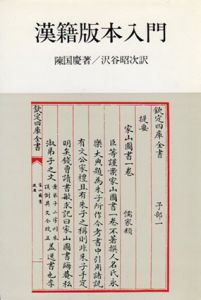 漢籍版本入門
陳国慶著/沢谷昭次訳
欽定四庫全書
子部一
家山圖書
儒家類
提要
臣等謹案家山圖書一卷不著撰人名氏永
樂大典題為朱子所作今考書中引用諸說
有文公家禮且有朱子之稱則非朱子手定
明矣錢曾讀書敏求記曰家山圖書晦菴私
淑弟子之文
欽定四庫全書